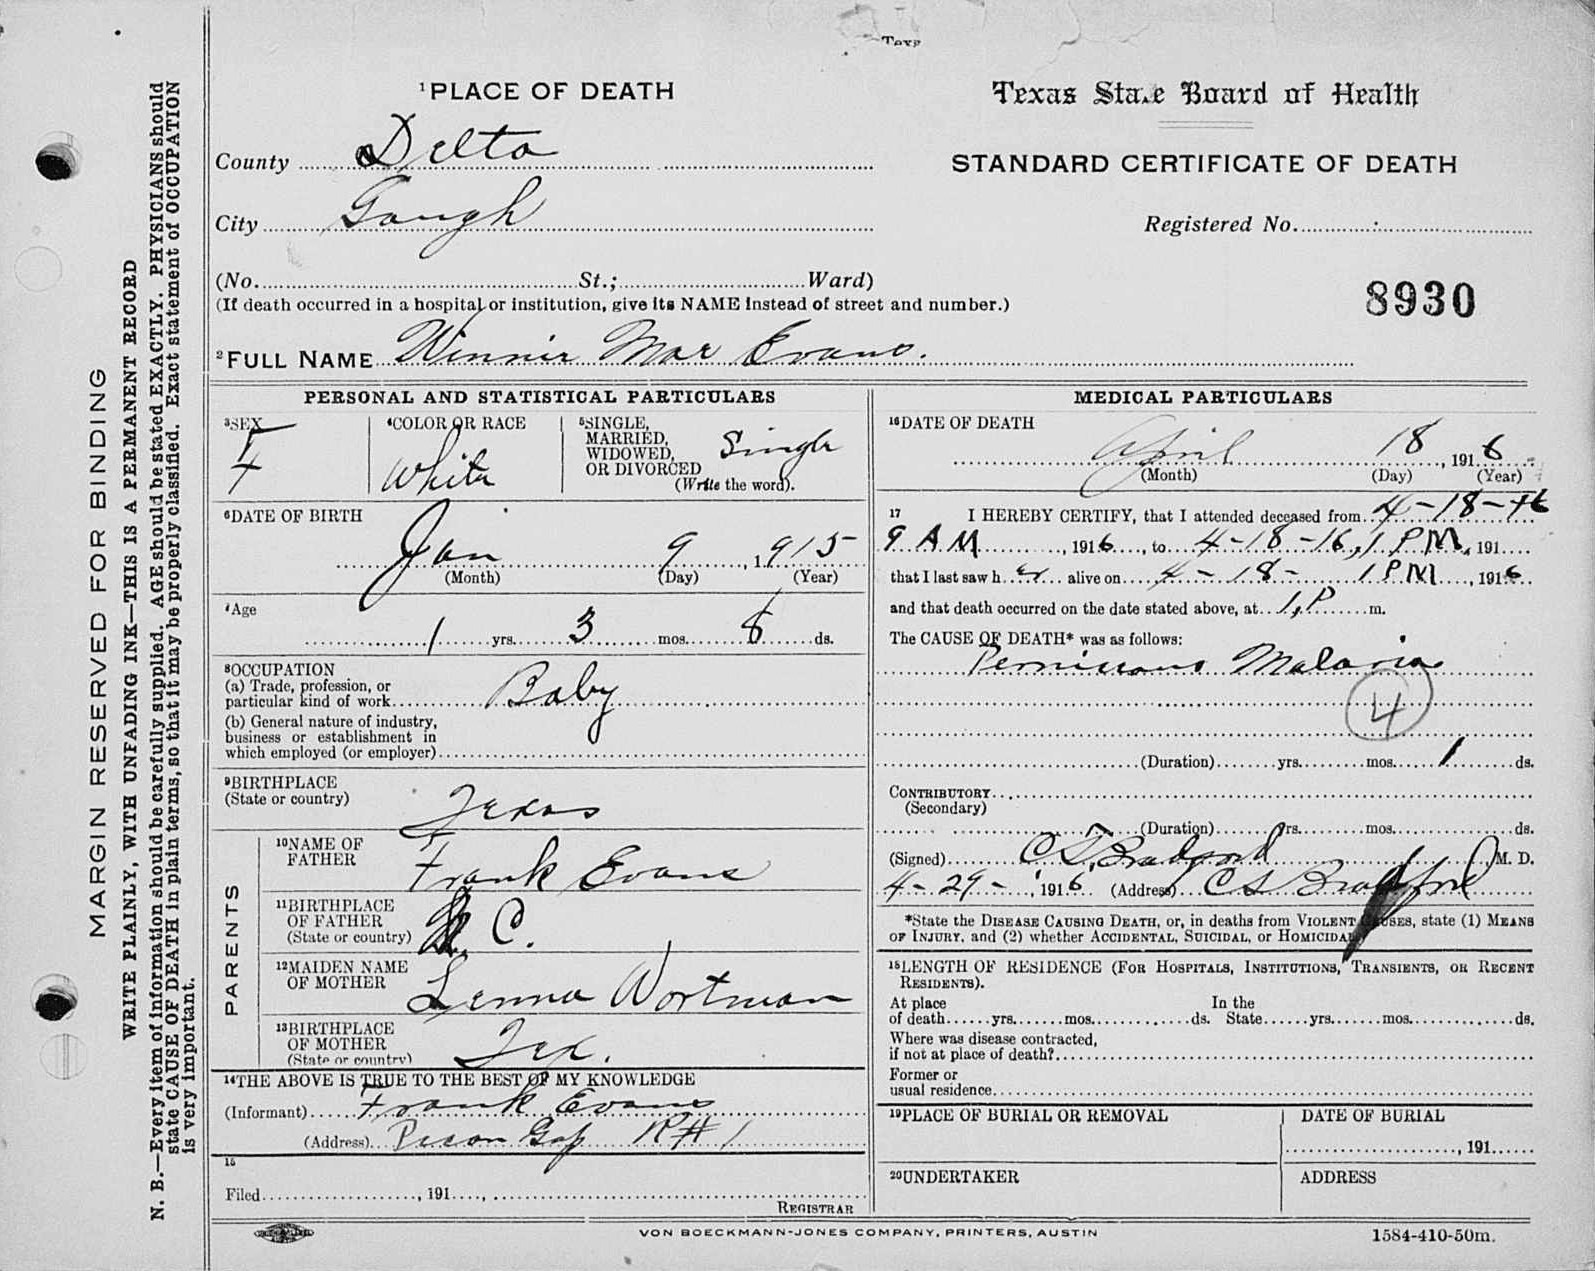 Texa
¹PLACE OF DEATH
Texas State Board of Health
STANDARD CERTIFICATE OF DEATH
County Delta
City Gough
Registered No.
(No. St.; Ward)
(If death occurred in a hospital or institution, give its NAME instead of street and number.)
8930
²FULL NAME Winnie Mae Evans.
PERSONAL AND STATISTICAL PARTICULARS
³SEX F
⁴COLOR OR RACE White
⁵SINGLE, MARRIED, WIDOWED, OR DIVORCED (Write the word). Single
⁶DATE OF BIRTH
Jan 9, 1915
(Month) (Day) (Year)
⁷Age
1 yrs. 3 mos. 8 ds.
⁸OCCUPATION
(a) Trade, profession, or
particular kind of work Baby
(b) General nature of industry,
business or establishment in
which employed (or employer)
⁹BIRTHPLACE
(State or country) Texas
PARENTS
¹⁰NAME OF
FATHER Frank Evans
¹¹BIRTHPLACE
OF FATHER
(State or country) C.
¹²MAIDEN NAME
OF MOTHER Lenna Wortman
¹³BIRTHPLACE
OF MOTHER
(State or country) Tex.
¹⁴THE ABOVE IS TRUE TO THE BEST OF MY KNOWLEDGE
(Informant) Frank Evans
(Address) Pecan Gap R# 1
¹⁵
Filed , 191 ,
REGISTRAR
MEDICAL PARTICULARS
¹⁶DATE OF DEATH
April 18, 1916
(Month) (Day) (Year)
¹⁷ I HEREBY CERTIFY, that I attended deceased from 4-18-16
9 AM, 1916, to 4-18-16, 1 PM, 191
that I last saw h er alive on 4-18- 1 PM, 1916
and that death occurred on the date stated above, at 1, P m.
The CAUSE OF DEATH* was as follows:
Pernicious Malaria
4
(Duration) yrs. mos. 1 ds.
CONTRIBUTORY
(Secondary)
(Duration) yrs. mos. ds.
(Signed) C S Bradford, M. D.
4-29-, 1916 (Address) C S Bradford
*State the DISEASE CAUSING DEATH, or, in deaths from VIOLENT CAUSES, state (1) MEANS
OF INJURY, and (2) whether ACCIDENTAL, SUICIDAL, or HOMICIDAL
¹⁸LENGTH OF RESIDENCE (FOR HOSPITALS, INSTITUTIONS, TRANSIENTS, OR RECENT
RESIDENTS).
At place In the
of death yrs. mos. ds. State yrs. mos. ds.
Where was disease contracted,
if not at place of death?
Former or
usual residence
¹⁹PLACE OF BURIAL OR REMOVAL
DATE OF BURIAL
, 191
²⁰UNDERTAKER
ADDRESS
VON BOECKMANN-JONES COMPANY, PRINTERS, AUSTIN
1584-410-50m.
MARGIN RESERVED FOR BINDING
WRITE PLAINLY, WITH UNFADING INK—THIS IS A PERMANENT RECORD
N. B.—Every item of information should be carefully supplied. AGE should be stated EXACTLY. PHYSICIANS should
state CAUSE OF DEATH in plain terms, so that it may be properly classified. Exact statement of OCCUPATION
is very important.